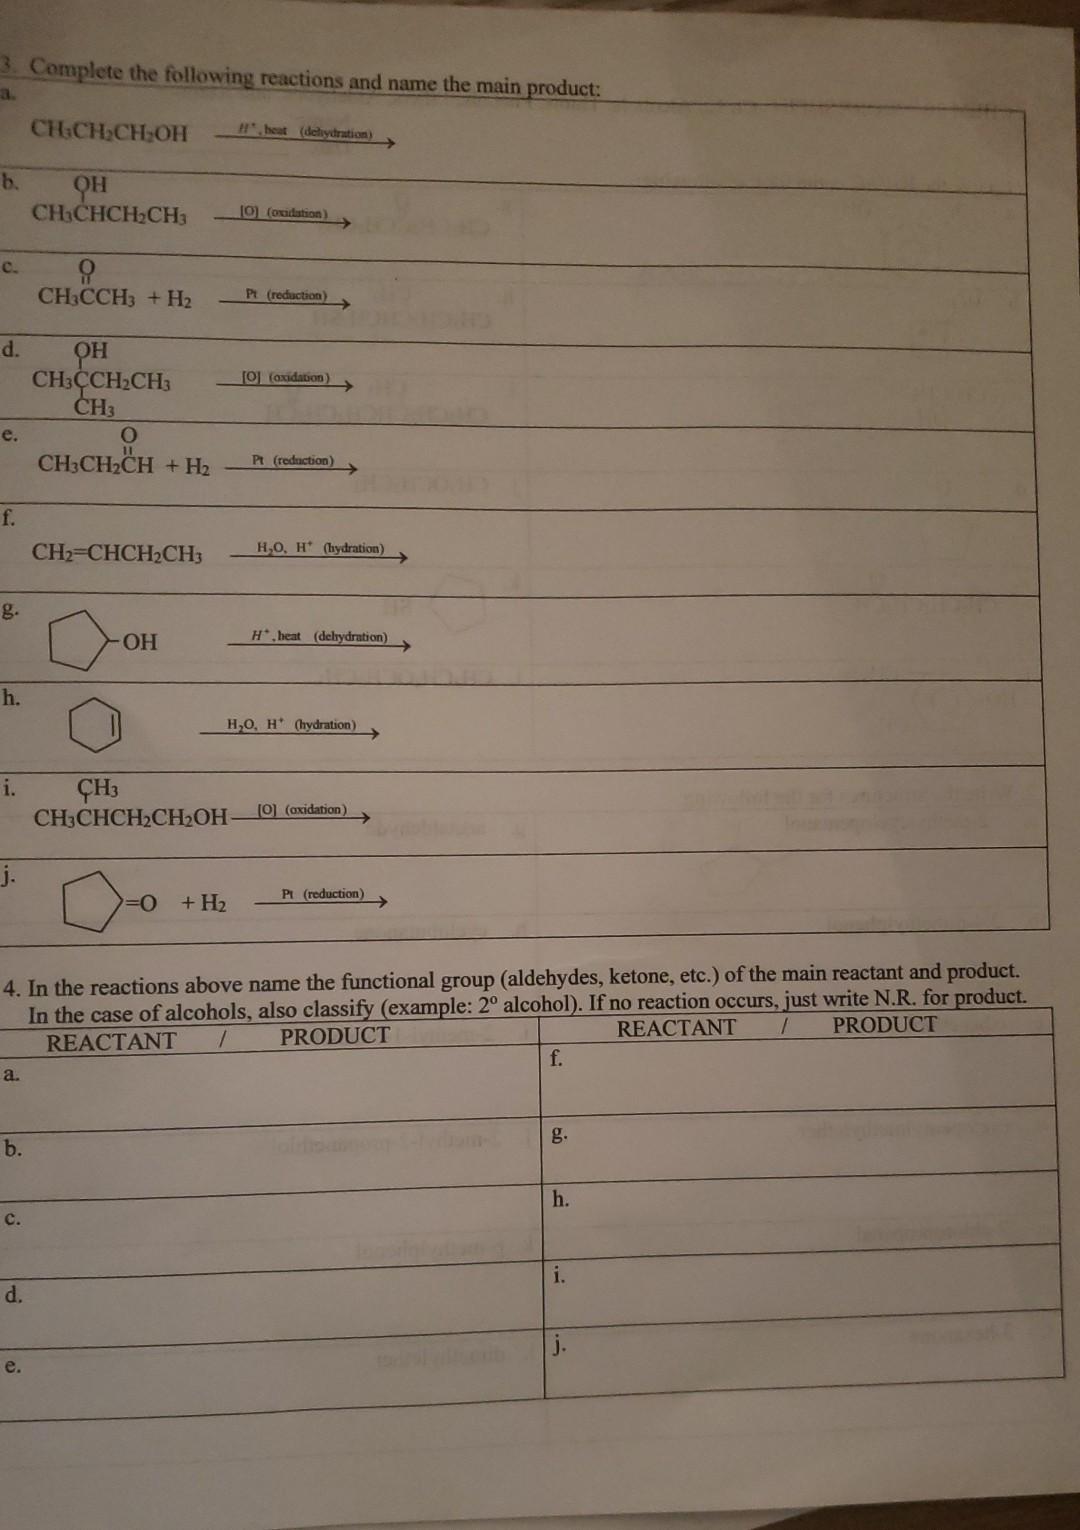 3. Complete the following reactions and name the main product:
a.
CH3CH2CH2OH H+, heat (dehydration)
b. OH
CH3CHCH2CH3 [O] (oxidation)
c. O
CH3CCH3 + H2 Pt (reduction)
d. OH
CH3CCH2CH3 [O] (oxidation)
CH3
e. O
CH3CH2CH + H2 Pt (reduction)
f.
CH2=CHCH2CH3 H2O, H+ (hydration)
g.
OH H+, heat (dehydration)
h.
H2O, H+ (hydration)
i. CH3
CH3CHCH2CH2OH [O] (oxidation)
j.
=O + H2 Pt (reduction)
4. In the reactions above name the functional group (aldehydes, ketone, etc.) of the main reactant and product.
In the case of alcohols, also classify (example: 2º alcohol). If no reaction occurs, just write N.R. for product.
REACTANT / PRODUCT REACTANT / PRODUCT
a. f.
b. g.
c. h.
d. i.
e. j.